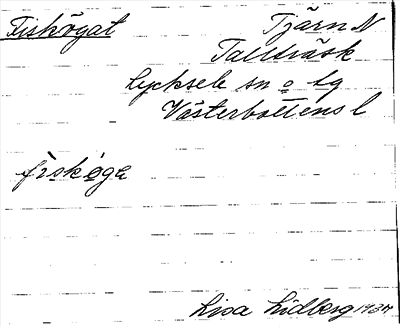 Fiskögat Tjärn N
Tallträsk
Lycksele sn o lg
Västerbottens l
fisköga
Lisa Lidberg 1934